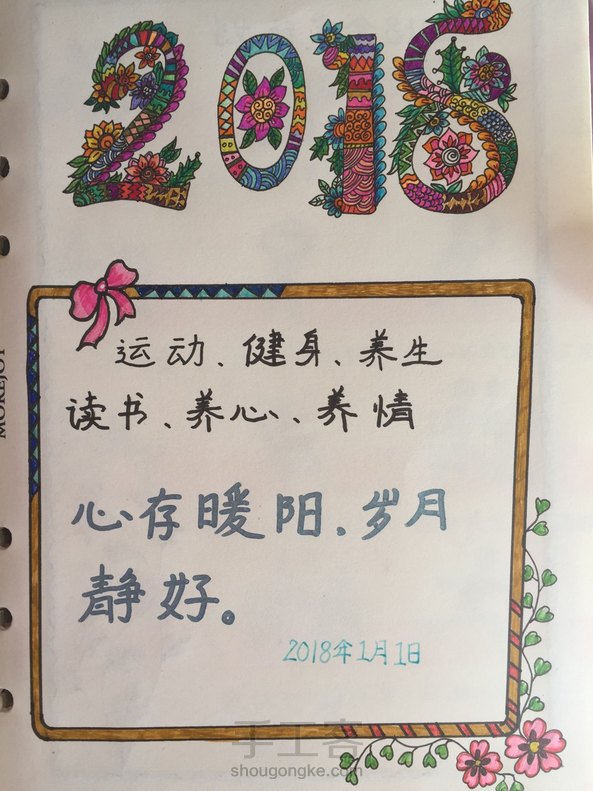 2018
运动、健身、养生
读书、养心、养情
心存暖阳、岁月
静好。
2018年1月1日
手工客
shougongke.com
MOREJOY